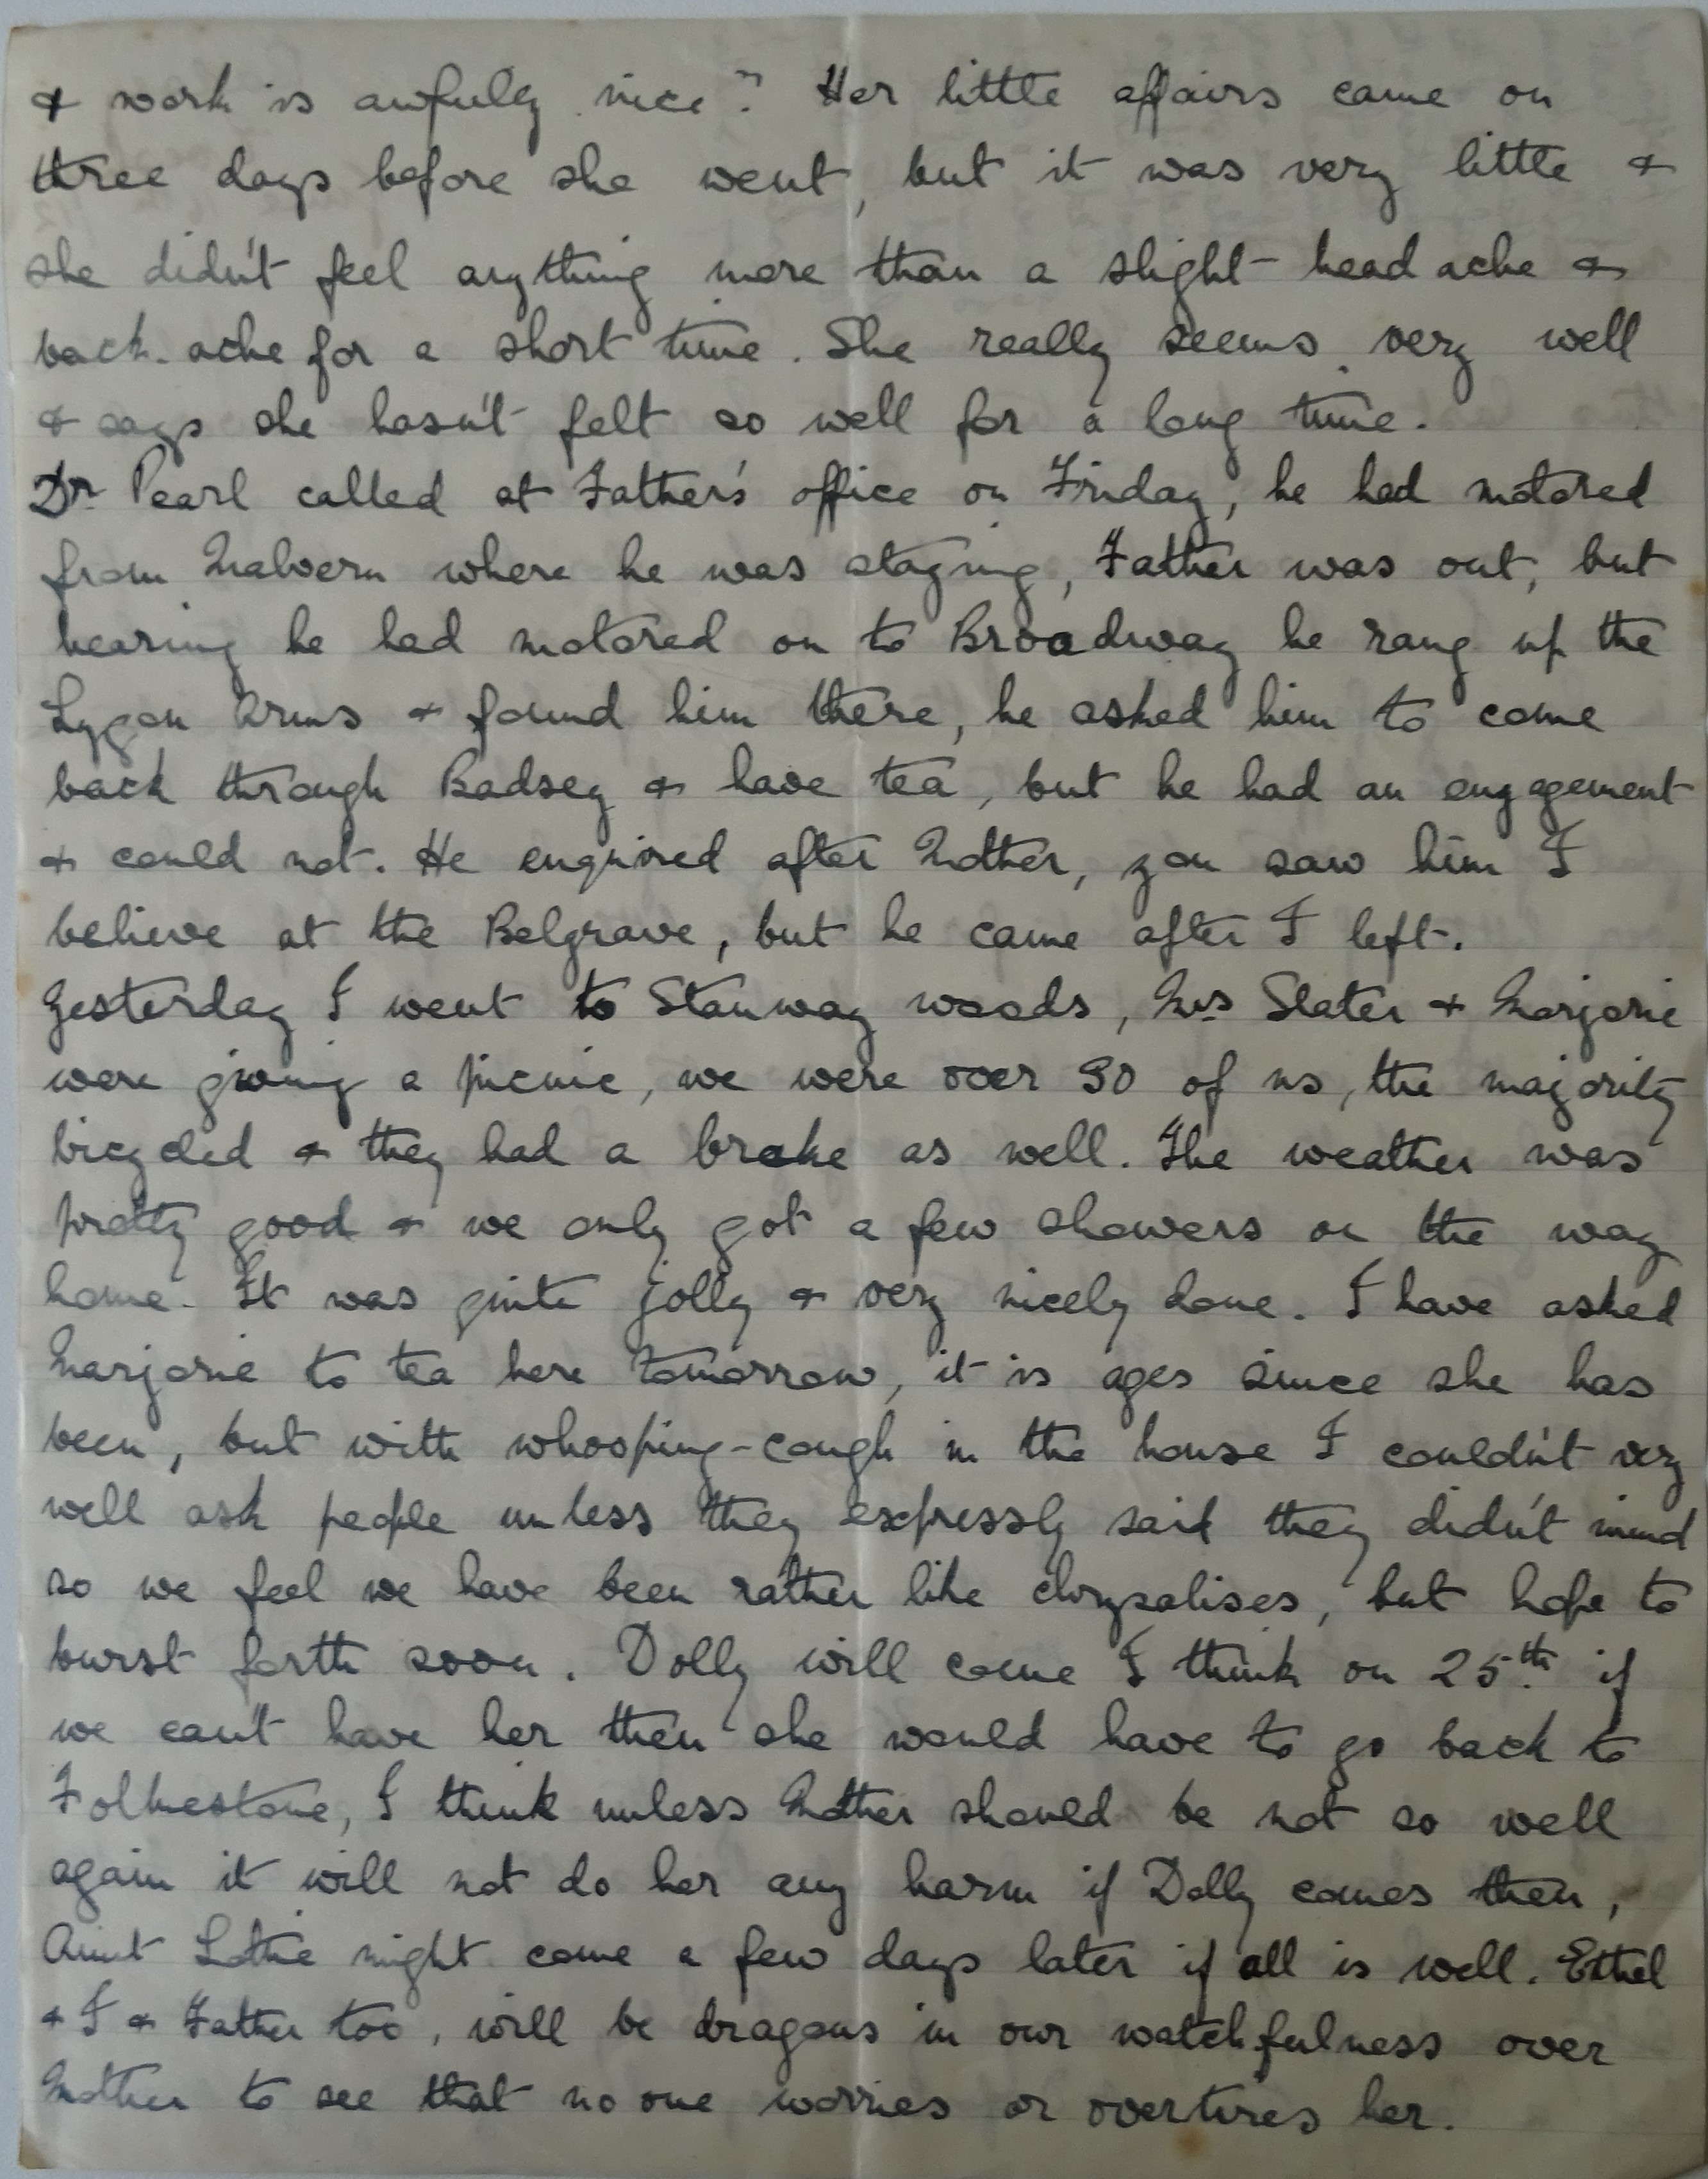 & work is awfully nice". Her little affairs came on
three days before she went, but it was very little &
she didn't feel anything more than a slight head ache &
back-ache for a short time. She really seems very well
& says she hasn't felt so well for a long time.
Dr. Pearl called at Father's office on Friday, he had motored
from Malvern where he was staying, Father was out, but
hearing he had motored on to Broadway he rang up the
Lygon Arms & found him there, he asked him to come
back through Badsey & have tea, but he had an engagement
& could not. He enquired after Mother, you saw him I
believe at the Belgrave, but he came after I left.
Yesterday I went to Stanway woods, Mrs Slater & Marjorie
were giving a picnic, we were over 30 of us, the majority
bicycled & they had a brake as well. The weather was
pretty good & we only got a few showers on the way
home. It was quite jolly & very nicely done. I have asked
Marjorie to tea here tomorrow, it is ages since she has
been, but with whooping-cough in the house I couldn't very
well ask people unless they expressly said they didn't mind
so we feel we have been rather like chrysalises, but hope to
burst forth soon. Dolly will come I think on 25th. if
we can't have her then she would have to go back to
Folkestone, I think unless Mother should be not so well
again it will not do her any harm if Dolly comes then,
Aunt Lottie might come a few days later if all is well. Ethel
& I & Father too, will be dragons in our watchfulness over
Mother to see that no one worries or overtires her.